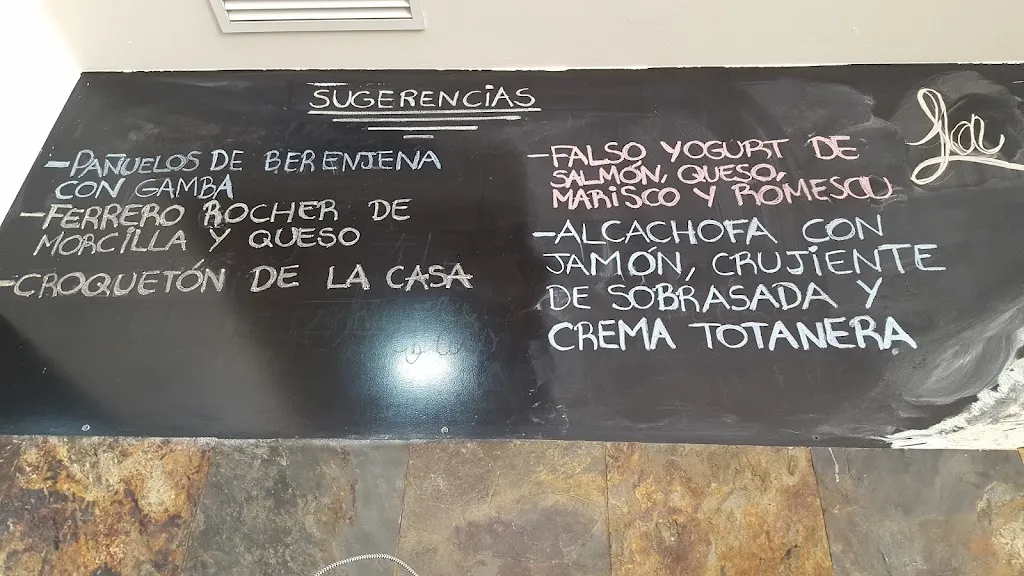 SUGERENCIAS
-PAÑUELOS DE BERENJENA
CON GAMBA
-FERRERO ROCHER DE
MORCILLA Y QUESO
-CROQUETÓN DE LA CASA
-FALSO YOGURT DE
SALMÓN, QUESO,
MARISCO Y ROMESCU
-ALCACHOFA CON
JAMÓN, CRUJIENTE
DE SOBRASADA Y
CREMA TOTANERA
La